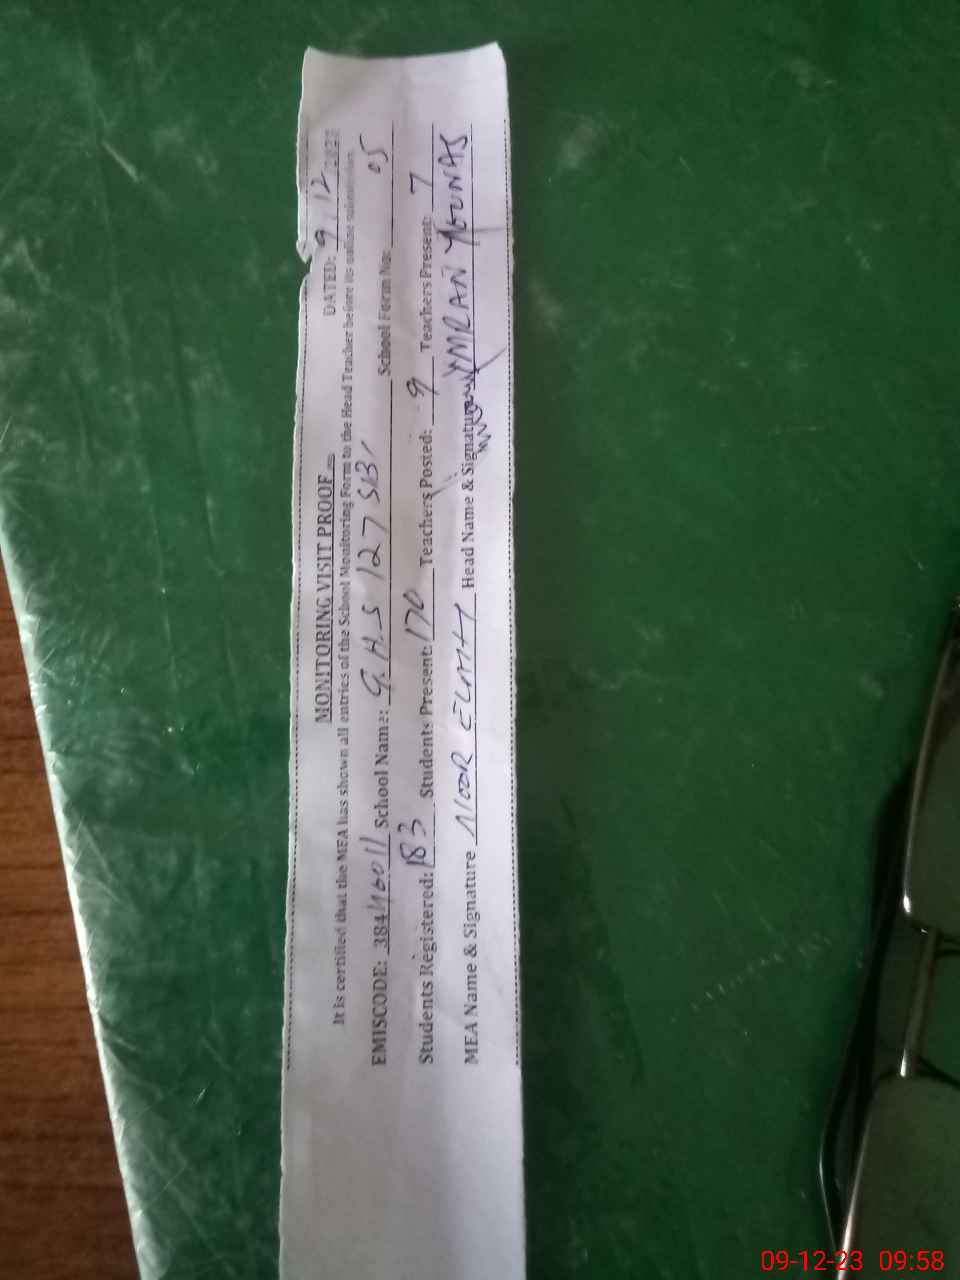 MONITORING VISIT PROOF
DATED: 9.12.2023
It is certified that the MEA has shown all entries of the School Monitoring Form to the Head Teacher before its online submission.
EMISCODE: 38416011 School Name: G.H.S 127 SB School Form No: 05
Students Registered: 183 Students Present: 170 Teachers Posted: 9 Teachers Present: 7
MEA Name & Signature NOOR Head Name & Signature YMRAN YOUNAS
09-12-23 09:58